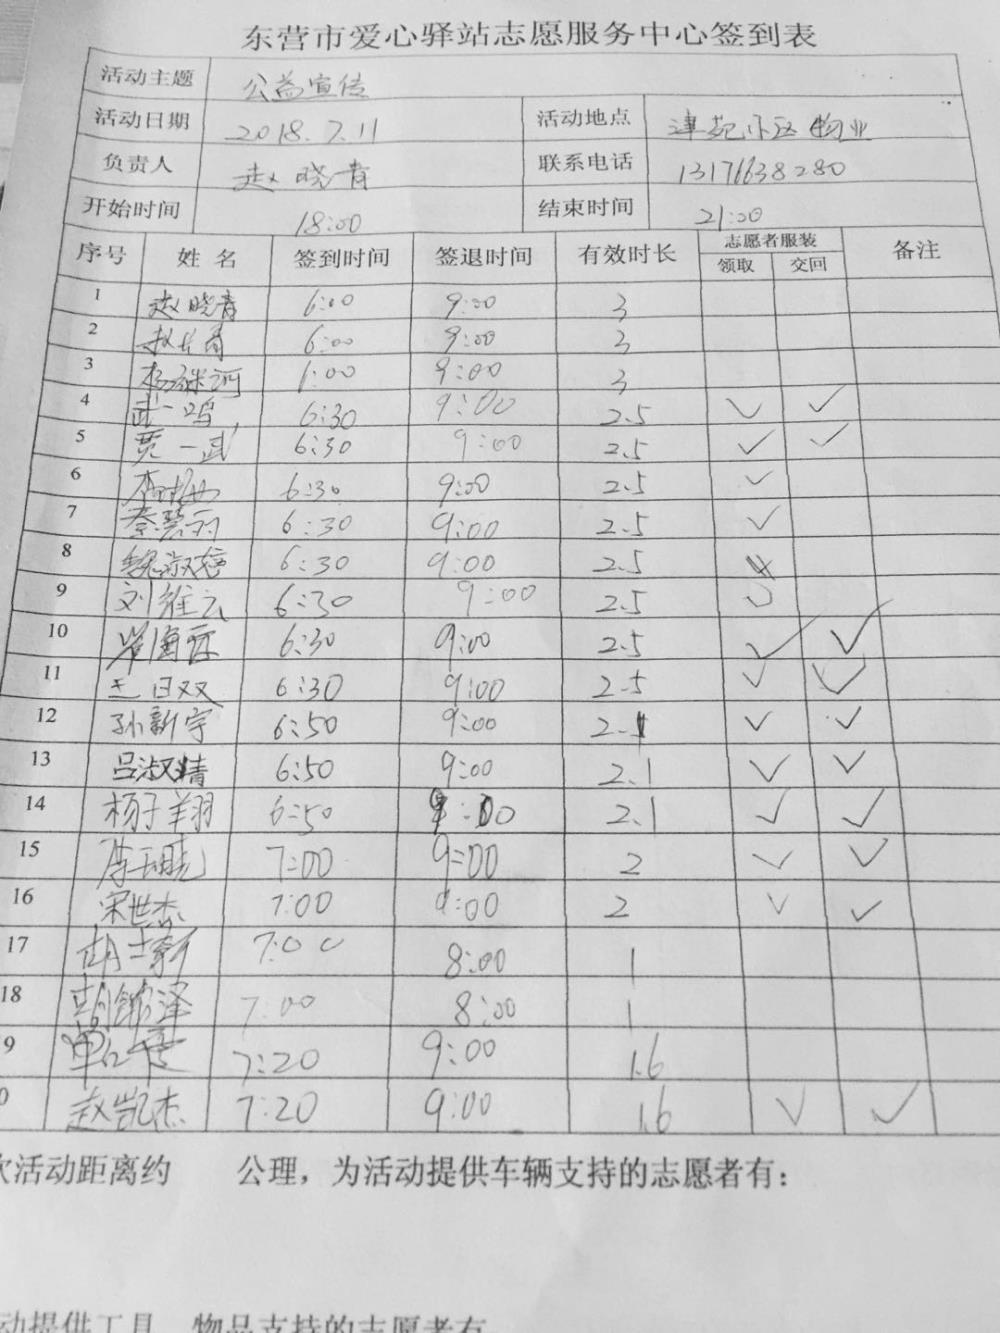 东营市爱心驿站志愿服务中心签到表
活动主题 公益宣传
活动日期 2018.7.11 活动地点 津苑小区物业
负责人 赵晓青 联系电话 13176638280
开始时间 18:00 结束时间 21:00
序号 姓名 签到时间 签退时间 有效时长 志愿者服装 备注
领取 交回
1 赵晓青 6:00 9:00 3
2 6:00 9:00 3
3 6:00 9:00 3
4 武一鸣 6:30 9:00 2.5 ✓ ✓
5 贾一武 6:30 9:00 2.5 ✓ ✓
6 6:30 9:00 2.5 ✓
7 秦碧雨 6:30 9:00 2.5 ✓
8 6:30 9:00 2.5
9 刘维云 6:30 9:00 2.5 ✓
10 6:30 9:00 2.5 ✓ ✓
11 王日双 6:30 9:00 2.5 ✓ ✓
12 孙新宇 6:50 9:00 2.1 ✓ ✓
13 吕淑精 6:50 9:00 2.1 ✓ ✓
14 杨子羊羽 6:50 9:00 2.1 ✓ ✓
15 7:00 9:00 2 ✓ ✓
16 宋世杰 7:00 9:00 2 ✓ ✓
17 7:00 8:00 1
18 7:00 8:00 1
9 7:20 9:00 1.6
0 赵凯杰 7:20 9:00 1.6 ✓ ✓
次活动距离约 公理，为活动提供车辆支持的志愿者有：
动提供工具、物品支持的志愿者有